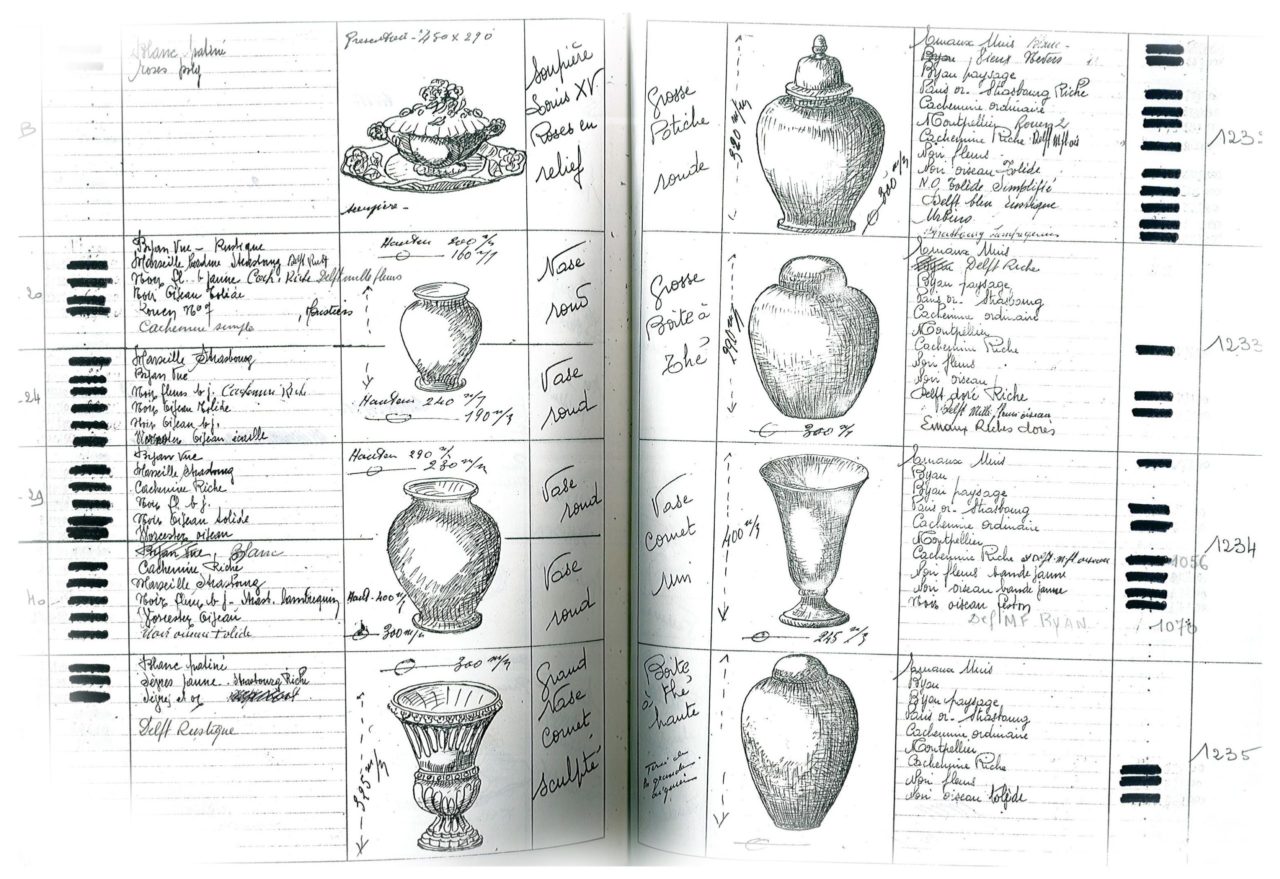 Blanc patiné
roses poly
Présentoir - 480 x 290
Soupière
Louis XV.
Roses en
relief
Soupière -
B
Byan Vue - Rustique
Marseille Strasbourg
Noir fl. b jaune Cach. Riche Delft mille fleurs
Noir Oiseau Tolède
Rouen N° 7
Cachemire simple
20
Hauteur 200 m/m
160 m/m
Vase
rond
Marseille Strasbourg
Byan Vue
Noir fleurs b j. Cachemire Riche
Noir Oiseau Tolède
Noir Oiseau b j.
Oiseau écaille
24
Hauteur 240 m/m
190 m/m
Vase
rond
Byan Vue
Marseille Strasbourg
Cachemire Riche
Noir fl b j.
Noir Oiseau tolède
Worcester oiseau
29
Hauteur 290 m/m
230 m/m
Vase
rond
Byan Vue, Blanc
Cachemire Riche
Marseille Strasbourg
Noir fleurs b j - Strasb. Lambrequin
Worcester Oiseau
Noir oiseau tolède
40
Haut. 400 m/m
300 m/m
Vase
rond
Blanc patiné
Sèvres jaune - Strasbourg Riche
Sèvres et or
Delft Rustique
300 m/m
385 m/m
Grand
Vase
Cornet
sculpté
Grosse
Potiche
ronde
520 m/m
300 m/m
Byan, Vieux Nevers
Byan paysage
Paris or - Strasbourg Riche
Cachemire ordinaire
Montpellier Rouen 2
Cachemire Riche Delft
Noir fleurs
Noir oiseau Tolède
N.O. Tolède Simplifié
Delft bleu
Strasbourg Lambrequin
Grosse
Boîte à
Thé
300 m/m
Delft Riche
Byan paysage
Paris or - Strasbourg
Cachemire ordinaire
Montpellier
Cachemire Riche
Noir fleurs
Noir oiseau
Delft doré Riche
Delft Mille fleurs oiseau
Emaux Riches dorés
1233
Vase
Cornet
Uni
400 m/m
245 m/m
Byan
Byan paysage
Paris or - Strasbourg
Cachemire ordinaire
Montpellier
Cachemire Riche
Noir fleurs bande jaune
Noir oiseau bande jaune
Noir oiseau
Delf MF BYAN
1234
1056
1073
Boîte
à thé
haute
Byan
Byan paysage
Paris or - Strasbourg
Cachemire ordinaire
Montpellier
Cachemire Riche
Noir fleurs
Noir oiseau tolède
1235